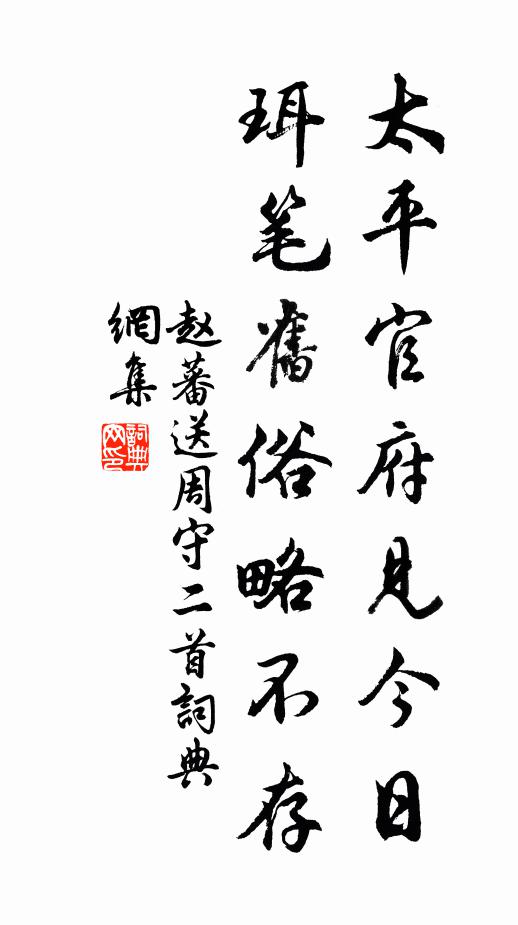 太平官府見今日
珥笔舊俗略不存
赵蕃送周守二首詞典
網集
詞典
网印